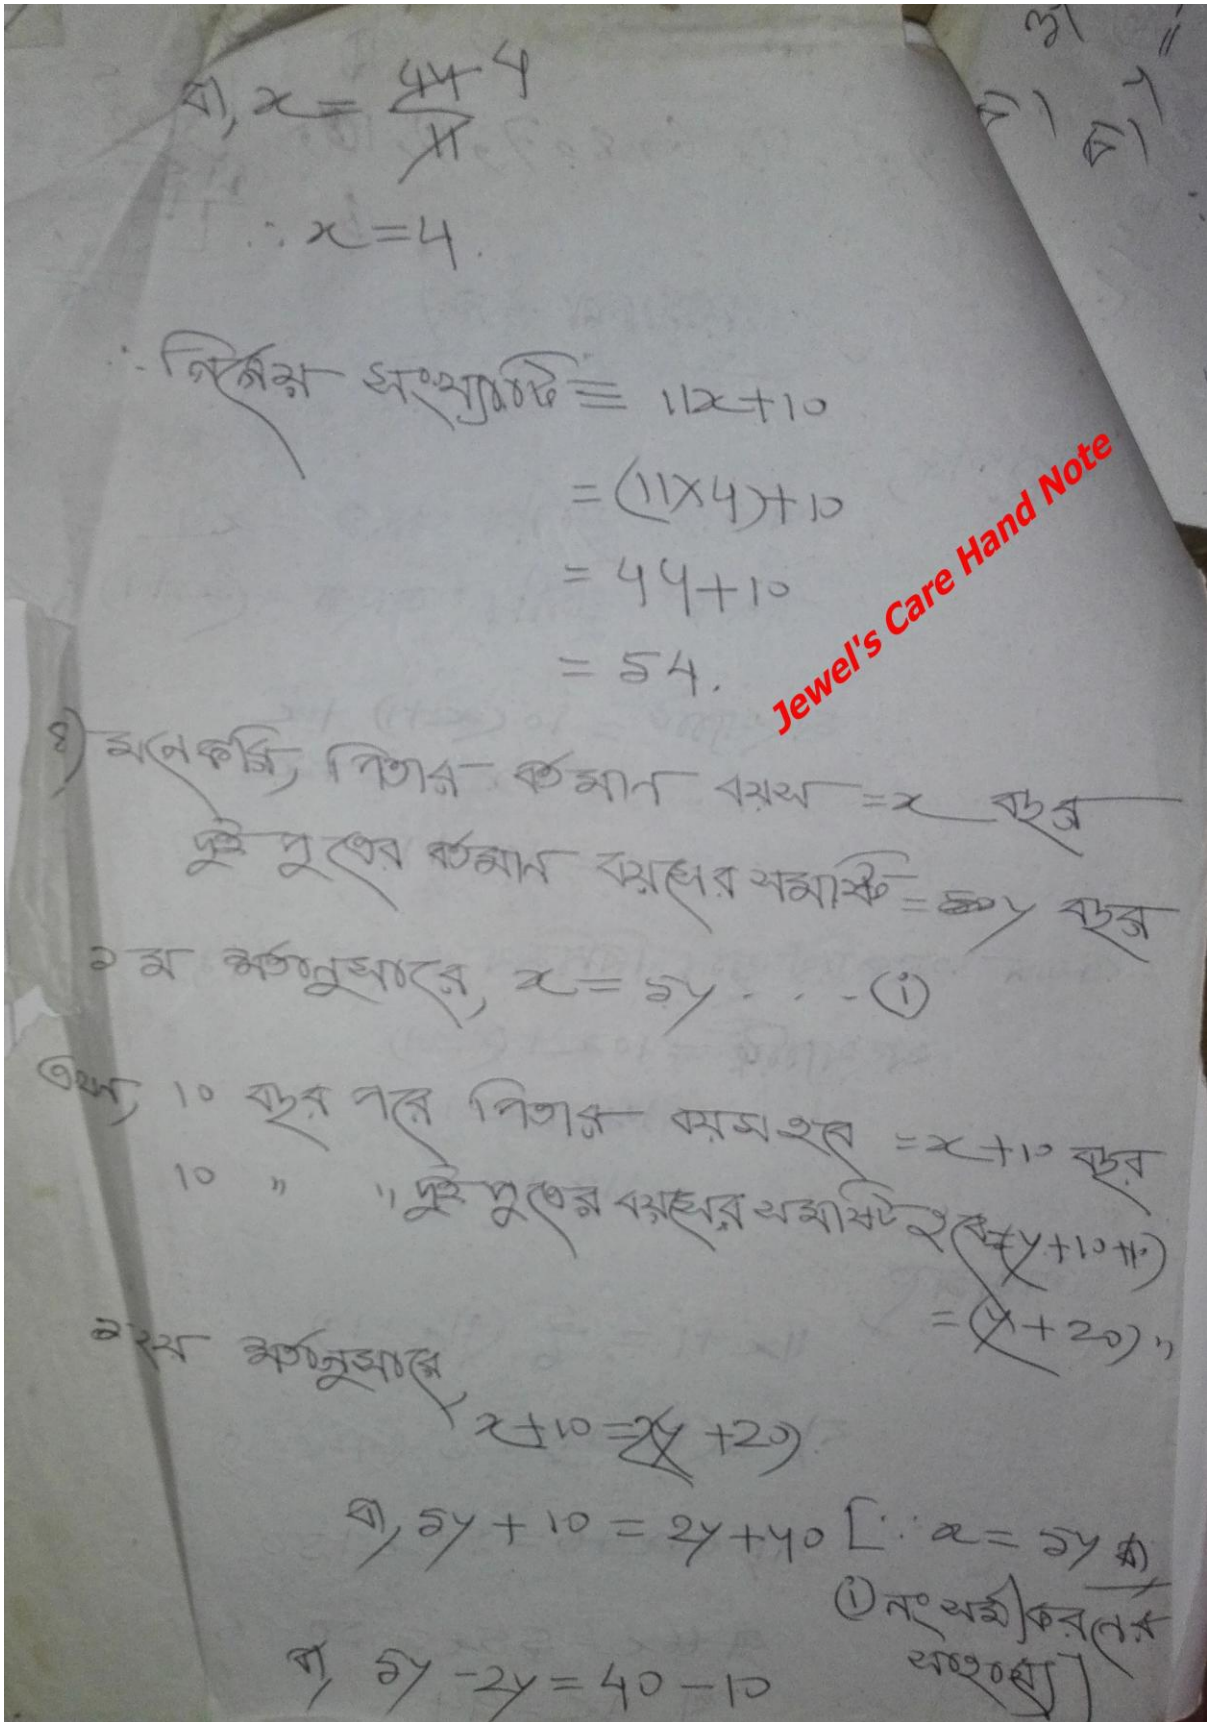 বা, x = 44 4 / 11
∴ x = 4.
∴ নির্ণেয় সংখ্যাটি = 11x+10
= (11×4)+10
= 44+10
= 54.
Jewel's Care Hand Note
মনেকরি, পিতার বর্তমান বয়স = x বছর
দুই পুত্রের বর্তমান বয়সের সমষ্টি = y বছর
১ম শর্তানুসারে, x = 5y . . . . (i)
10 বছর পরে পিতার বয়স হবে = x+10 বছর
10 " " দুই পুত্রের বয়সের সমষ্টি হবে = (y+10+10)
= (y+20) "
২য় শর্তানুসারে,
x+10 = 2(y+20)
বা, 5y + 10 = 2y+40 [∵ x = 5y
(i) নং সমীকরনের
সাহায্যে]
বা, 5y - 2y = 40 - 10